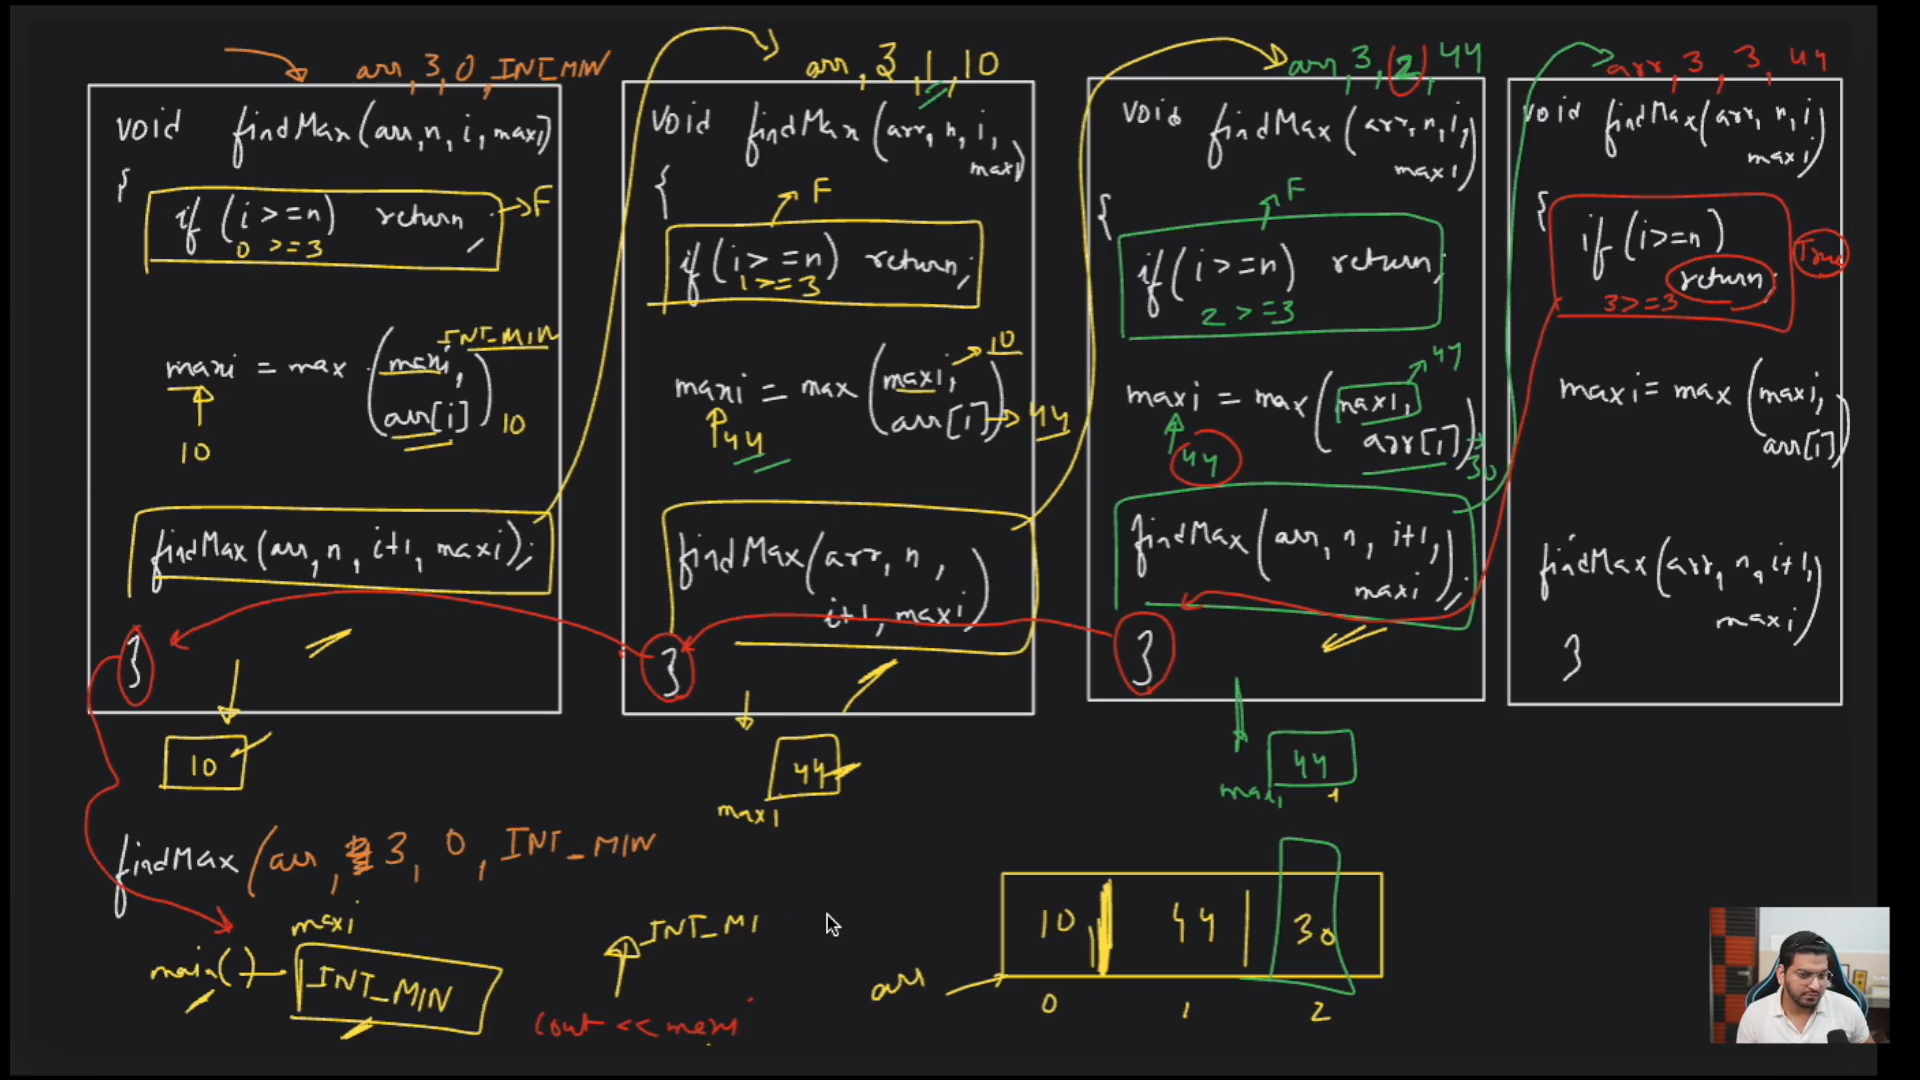 arr, 3, 0, INT_MIN
void findMax(arr, n, i, maxi)
{
if (i >= n) return; → F
0 >= 3
INT_MIN
maxi = max (maxi,
arr[i]) 10
10
findMax(arr, n, i+1, maxi);
}
10
arr, 3, 1, 10
void findMax(arr, n, i,
maxi)
{
F
if (i >= n) return;
1 >= 3
10
maxi = max (maxi,
arr[i]) → 44
44
findMax(arr, n,
i+1, maxi)
}
44
maxi
arr, 3, 2, 44
void findMax(arr, n, i,
maxi)
{
F
if (i >= n) return;
2 >= 3
44
maxi = max(maxi,
arr[i]) → 30
44
findMax(arr, n, i+1,
maxi);
}
44
maxi
arr, 3, 3, 44
void findMax(arr, n, i
maxi)
{
if (i>=n)
return;
True
3 >= 3
maxi = max (maxi,
arr[i])
findMax(arr, n, i+1,
maxi)
}
findMax(arr, 3, 0, INT_MIN
maxi
main() INT_MIN
INT_MI
cout << maxi
10 44 30
arr
0 1 2